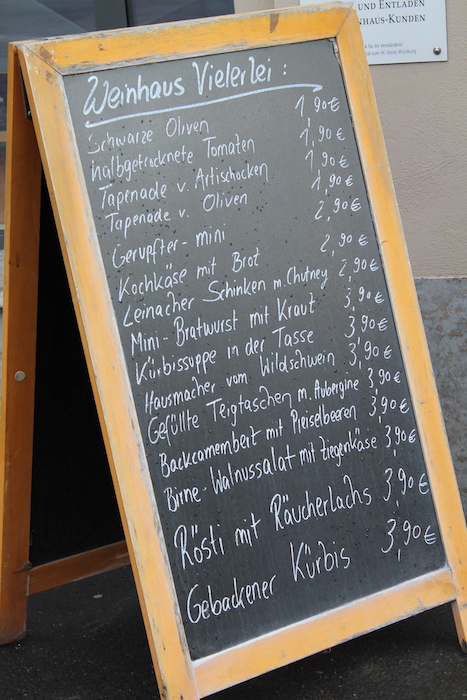 UND ENTLADEN
NHAUS-KUNDEN
k für Ihr Verständnis!
Würzburg
Weinhaus Vielerlei:
Schwarze Oliven 1,90€
halbgetrocknete Tomaten 1,90€
Tapenade v. Artischocken 1,90€
Tapenade v. Oliven 1,90€
Gerupfter-mini 2,90€
Kochkäse mit Brot 2,90€
Leinacher Schinken m. Chutney 2,90€
Mini-Bratwurst mit Kraut 3,90€
Kürbissuppe in der Tasse 3,90€
Hausmacher vom Wildschwein 3,90€
Gefüllte Teigtaschen m. Aubergine 3,90€
Backcamembert mit Preiselbeeren 3,90€
Birne-Walnussalat mit Ziegenkäse 3,90€
Rösti mit Räucherlachs 3,90€
Gebackener Kürbis 3,90€